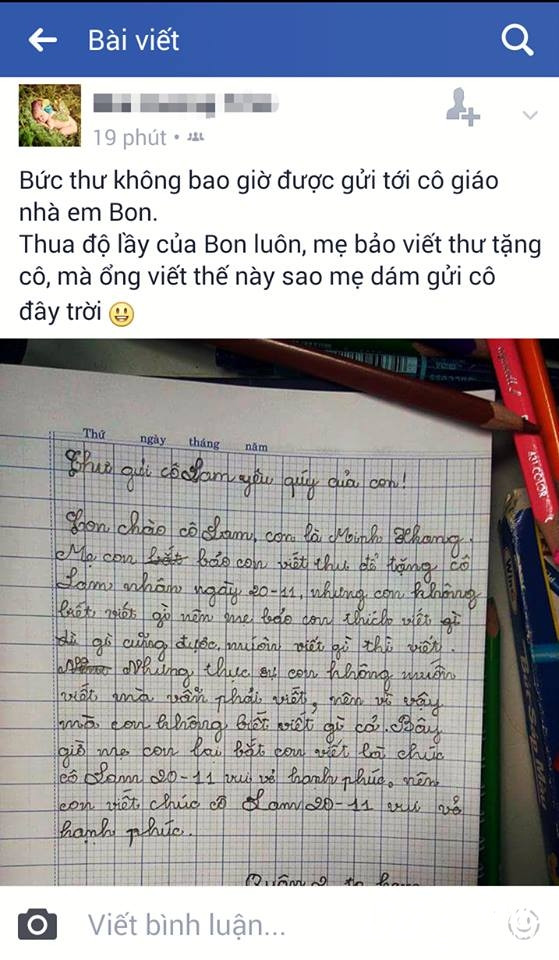 Bài viết
19 phút
Bức thư không bao giờ được gửi tới cô giáo
nhà em Bon.
Thua độ lầy của Bon luôn, mẹ bảo viết thư tặng
cô, mà ổng viết thế này sao mẹ dám gửi cô
đây trời
Thứ ngày tháng năm
Thư gửi cô Lam yêu quý của con!
Con chào cô Lam, con là Minh Khang.
Mẹ con bắt bảo con viết thư để tặng cô
Lam nhân ngày 20-11, nhưng con không
biết viết gì nên mẹ bảo con thích viết gì
gì cũng được, muốn viết gì thì viết.
Nhưng thực sự con không muốn
viết mà vẫn phải viết, nên vì vậy
mà con không biết viết gì cả. Bây
giờ mẹ con lại bắt con viết là chúc
cô Lam 20-11 vui vẻ hạnh phúc, nên
con viết chúc cô Lam 20-11 vui vẻ
hạnh phúc.
Viết bình luận...